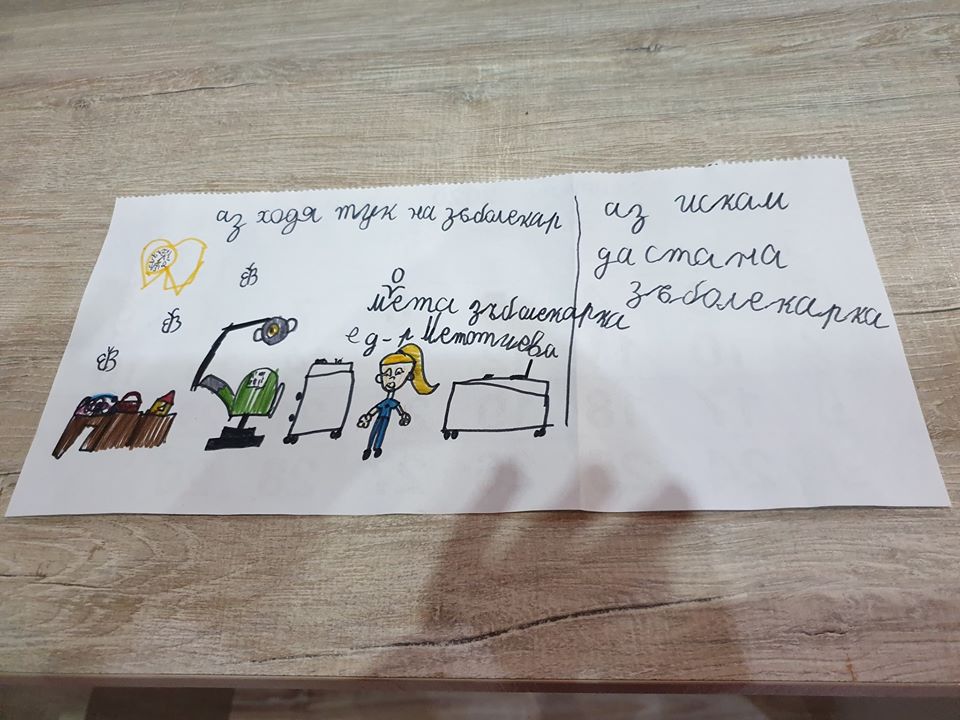 аз ходя тук на зъболекар
моята зъболекарка
е д-р
аз искам
да стана
зъболекарка